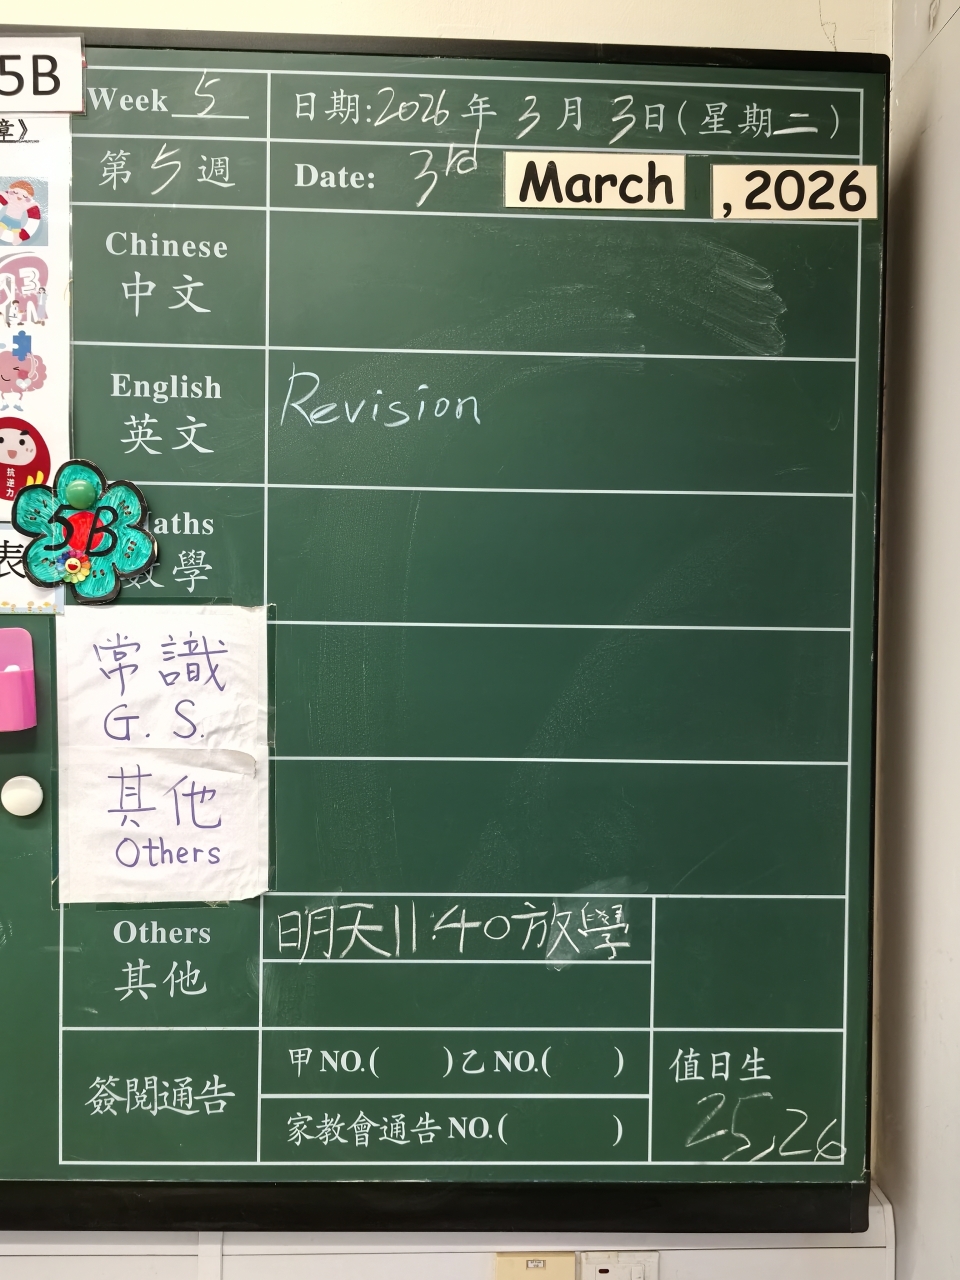 5B
章》
Week 5
日期:2026年3月3日(星期二)
第5週
Date: 3rd March, 2026
Chinese
中文
English
英文
Revision
抗逆力
5B
aths
數學
表
常識
G. S.
其他
Others
Others
其他
明天11:40放學
簽閱通告
甲NO.( )乙NO.( )
家教會通告NO.( )
值日生
25,26